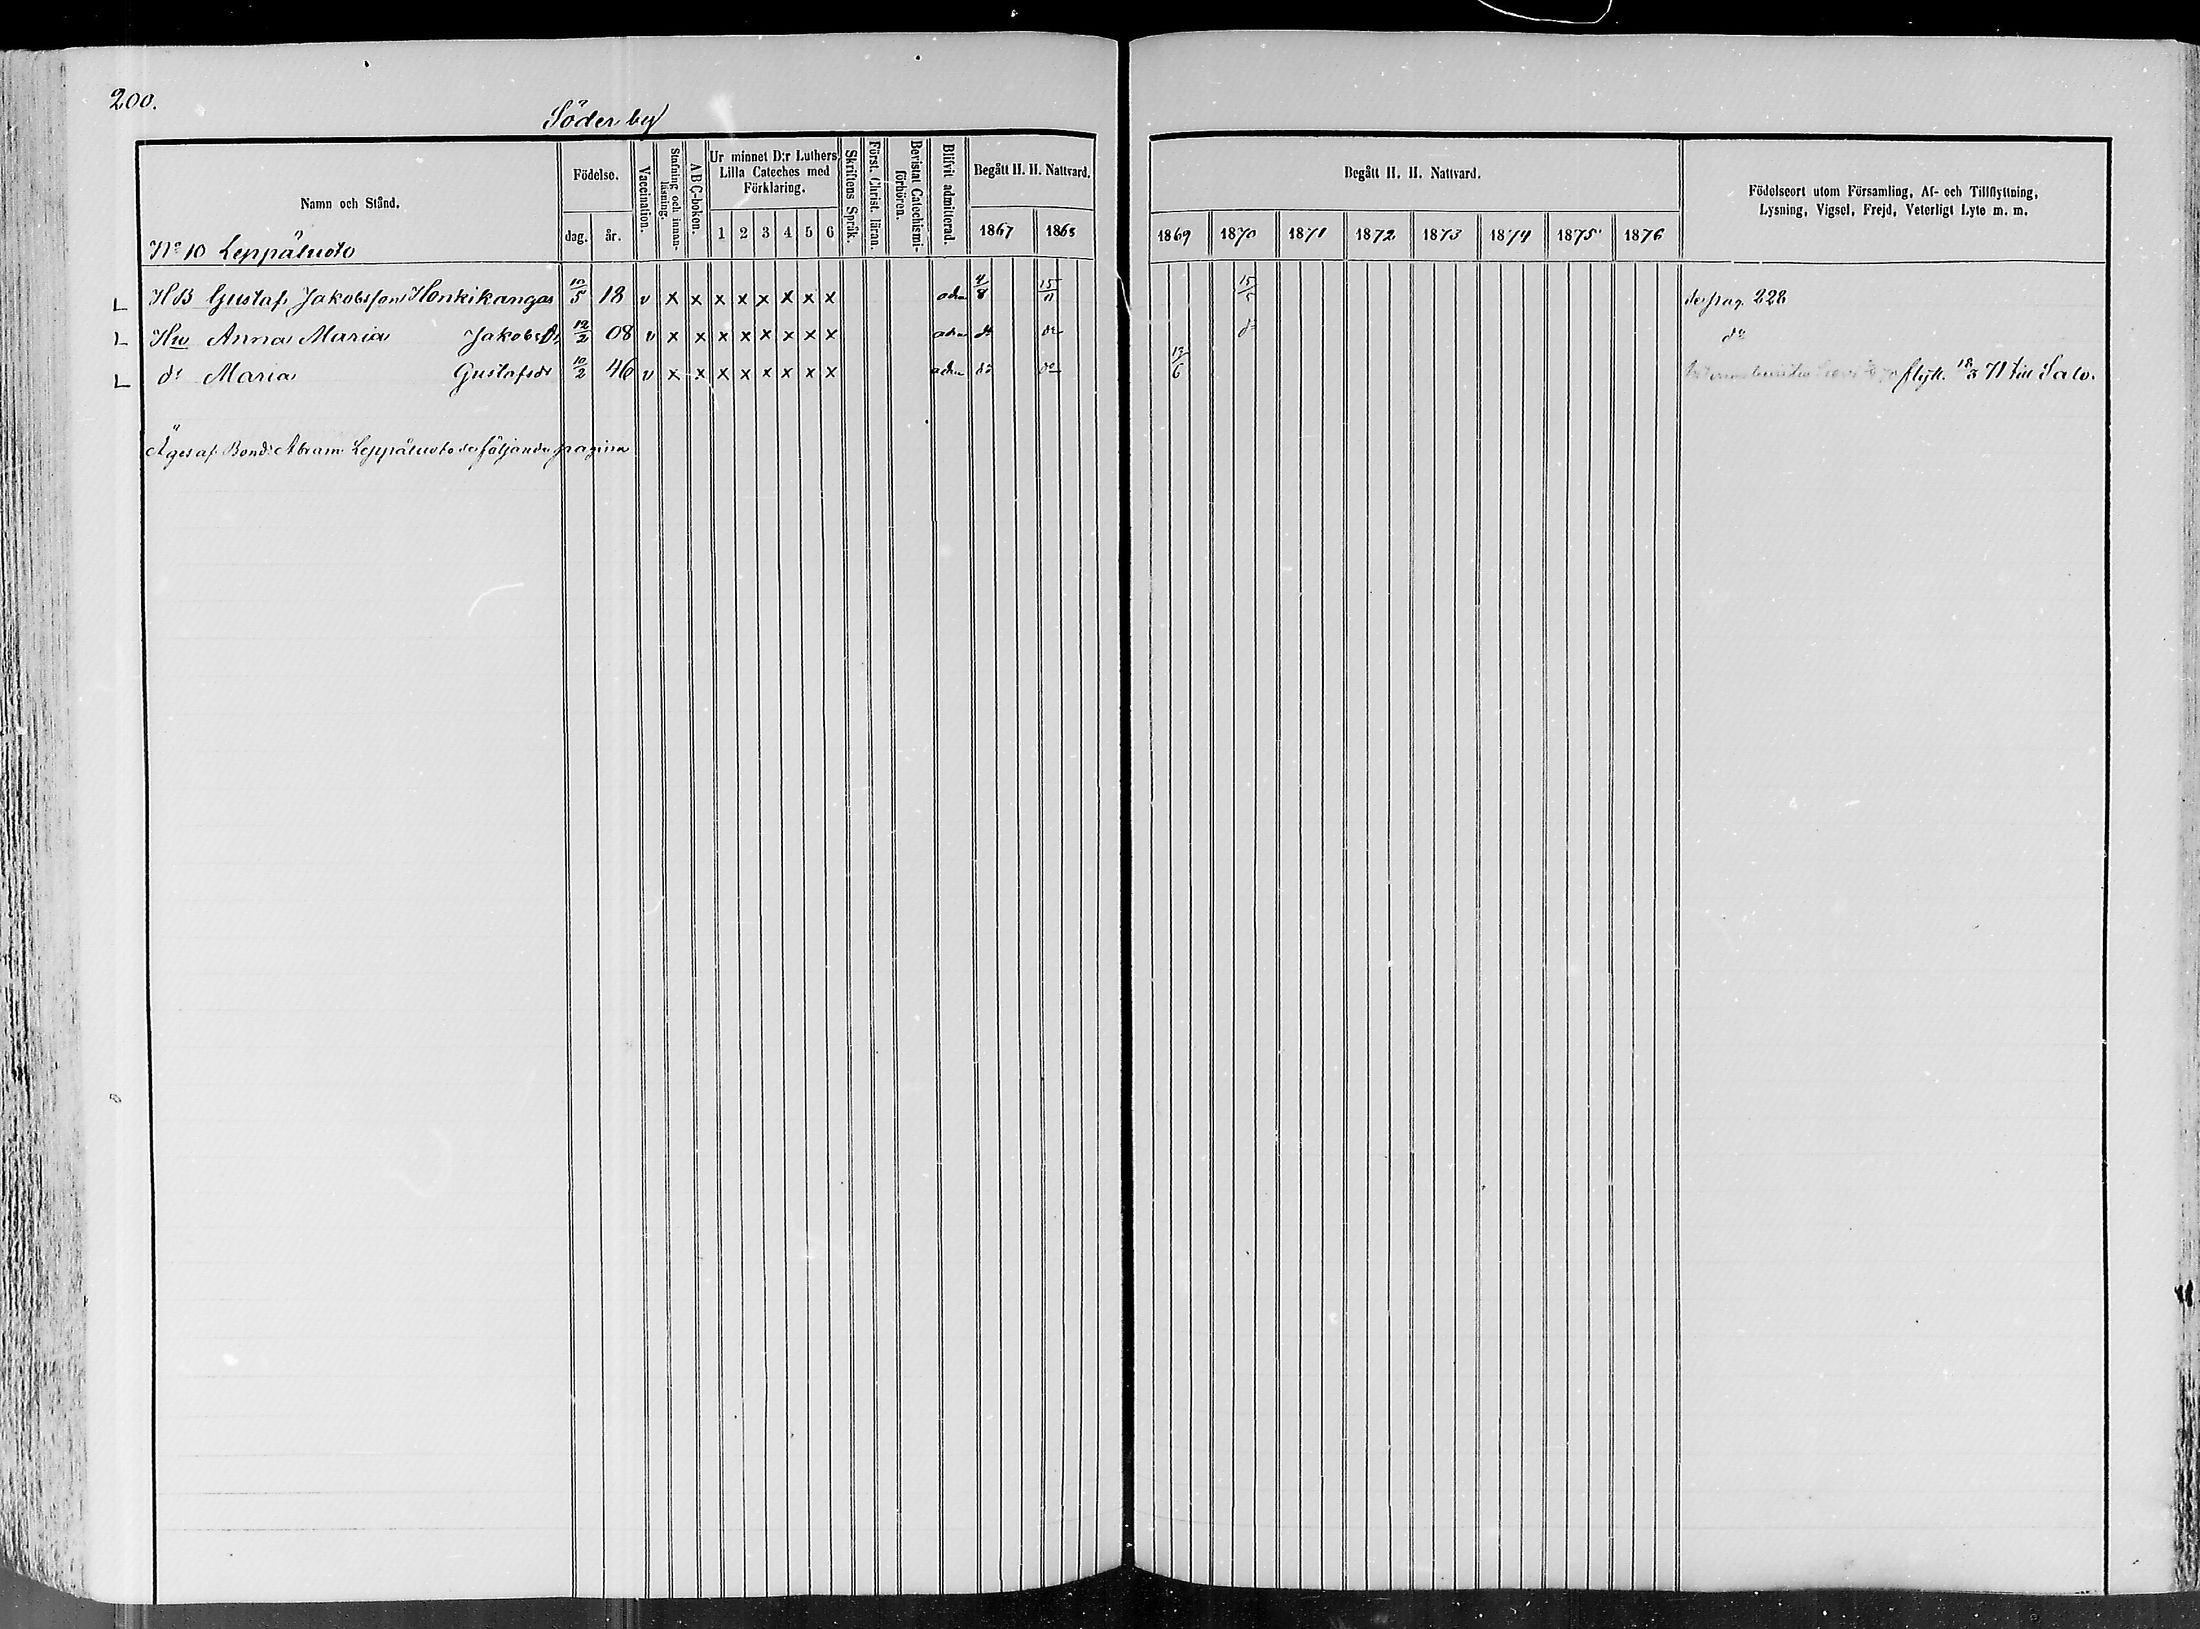 200.
Söderby
Namn och Stånd.
Födelse.
dag. år.
Vaccination.
Stafning och innanläsning.
A B C-boken.
Ur minnet D:r Luthers Lilla Cateches med Förklaring.
1 2 3 4 5 6
Skriftens Språk.
Först. Christ. läran.
Bevistat Catechismiförhören.
Blifvit admitterad.
Begått H. H. Nattvard.
1867 1868
Begått H. H. Nattvard.
1869 1870 1871 1872 1873 1874 1875 1876
Födelseort utom Församling, Af- och Tillflyttning,
Lysning, Vigsel, Frejd, Veterligt Lyte m. m.
No 10 Leppäluoto
L HB Gustaf Jakobsson Honkikangas 10/5 18 v x x x x x x x x adm 4/8 15/11 15/5 se pag. 228
L Hu Anna Maria Jakobsdr 12/2 08 v x x x x x x x x adm do do do do
L dr Maria Gustafsdr 10/2 46 v x x x x x x x x adm do do 13/6 flytt. 18/3 71 till Salo.
Äges af Bond. Abram Leppäluoto se följande pagina